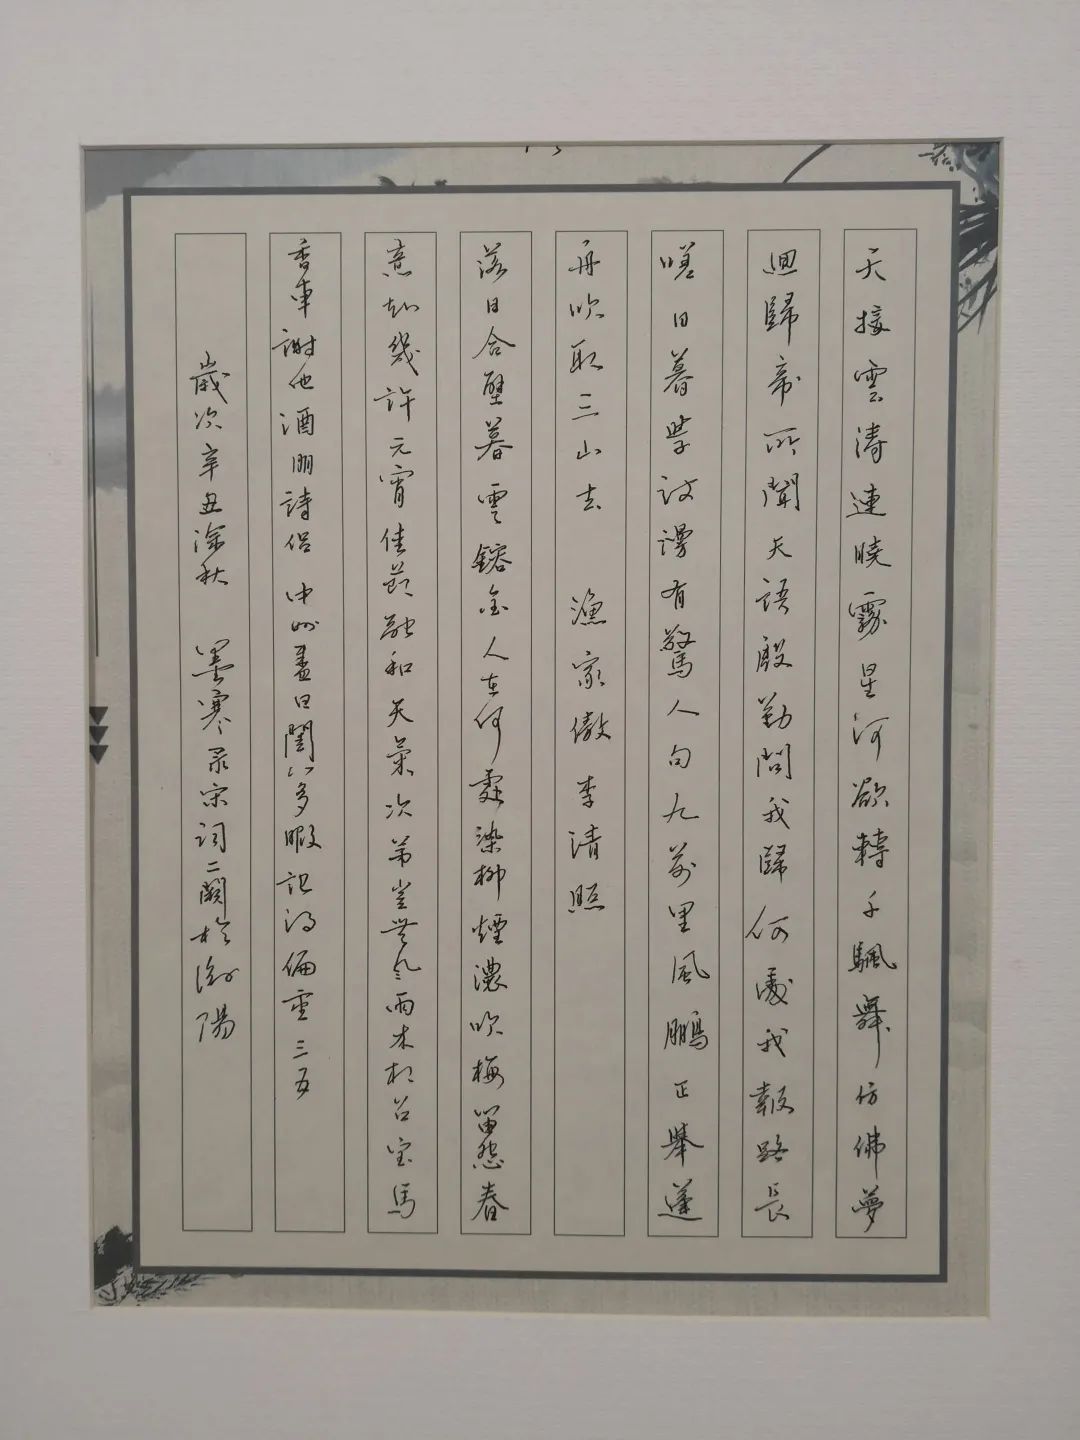 天接雲濤連曉霧星河欲轉千颿舞仿佛夢
迴歸帝所聞天語殷勤問我歸何處我報路長
嗟日暮學詩謾有驚人句九萬里風鵬正舉蓬
舟吹取三山去 漁家傲李清照
落日合璧暮雲鎔金人在何處染柳煙濃吹梅笛怨春
意知幾許元宵佳節融和天氣次第豈無風雨來相召宝馬
香車謝他酒朋詩侶中州盛日閨門多暇記得偏重三五
歲次辛丑深秋 墨寒录宋词二闋於陽